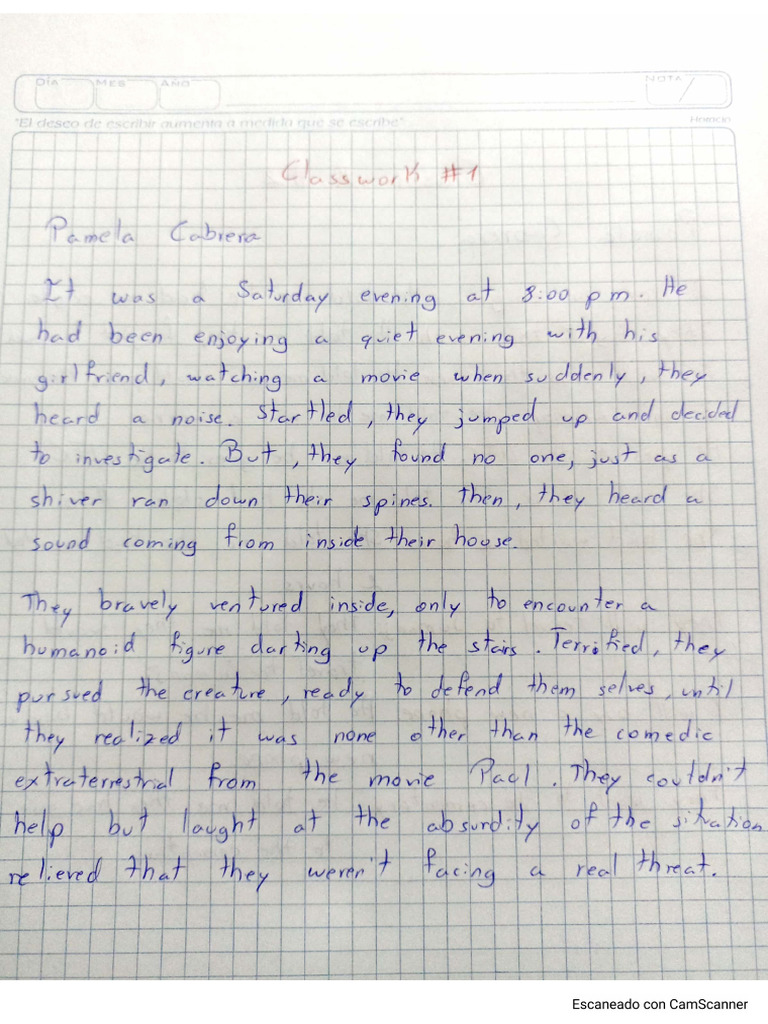 DÍA MES AÑO NOTA
"El deseo de escribir aumenta a medida que se escribe" Horacio
Classwork #1
Pamela Cabrera
It was a Saturday evening at 8:00 pm. He
had been enjoying a quiet evening with his
girlfriend, watching a movie when suddenly, they
heard a noise. Startled, they jumped up and decided
to investigate. But, they found no one, just as a
shiver ran down their spines. Then, they heard a
sound coming from inside their house.
They bravely ventured inside, only to encounter a
humanoid figure darting up the stairs. Terrified, they
pursued the creature, ready to defend them selves, until
they realized it was none other than the comedic
extraterrestrial from the movie Paul. They couldn't
help but laught at the absurdity of the situation
relieved that they weren't facing a real threat.
Escaneado con CamScanner